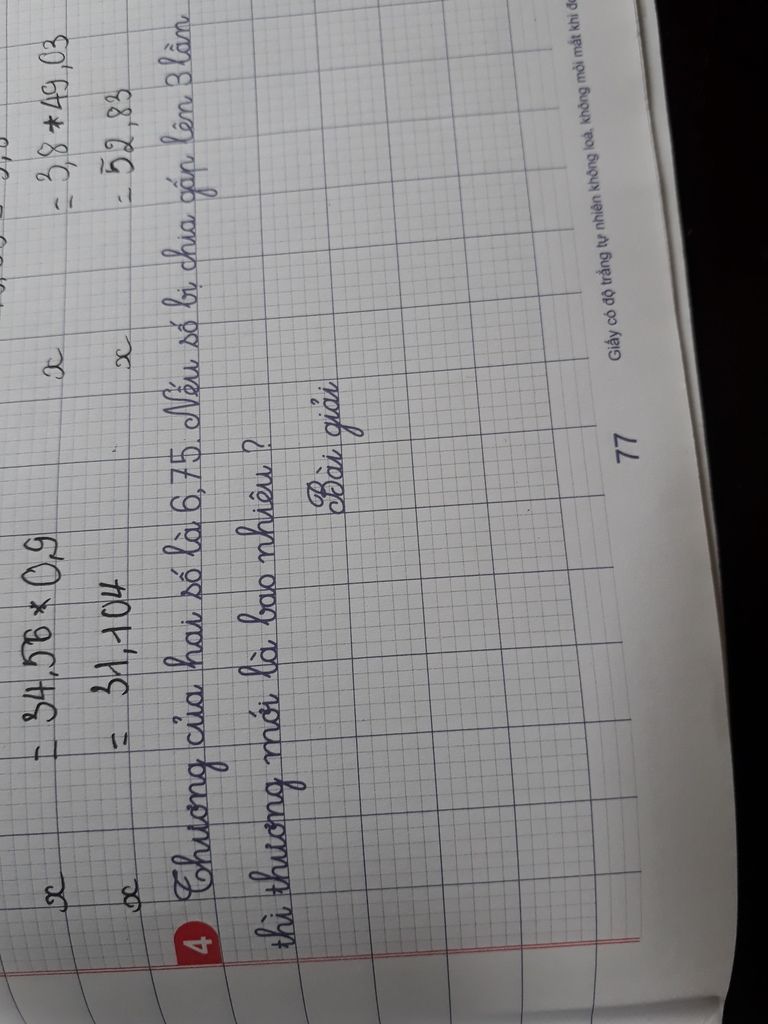 x = 34,56 * 0,9 x = 3,8 * 49,03
x = 31,104 x = 52,83
4 Thương của hai số là 6,75. Nếu số bị chia gấp lên 3 lần
thì thương mới là bao nhiêu?
Bài giải
77 Giấy có độ trắng tự nhiên không loá, không mỏi mắt khi